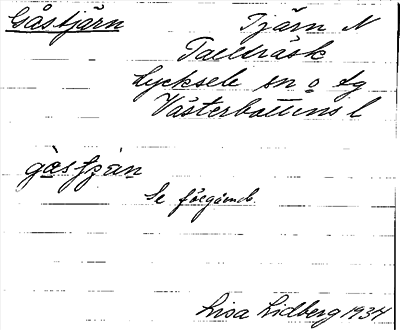 Gåstjärn Tjärn N
Tallträsk
Lycksele sn o tg
Västerbottens l
Se föregående.
Lisa Lidberg 1934